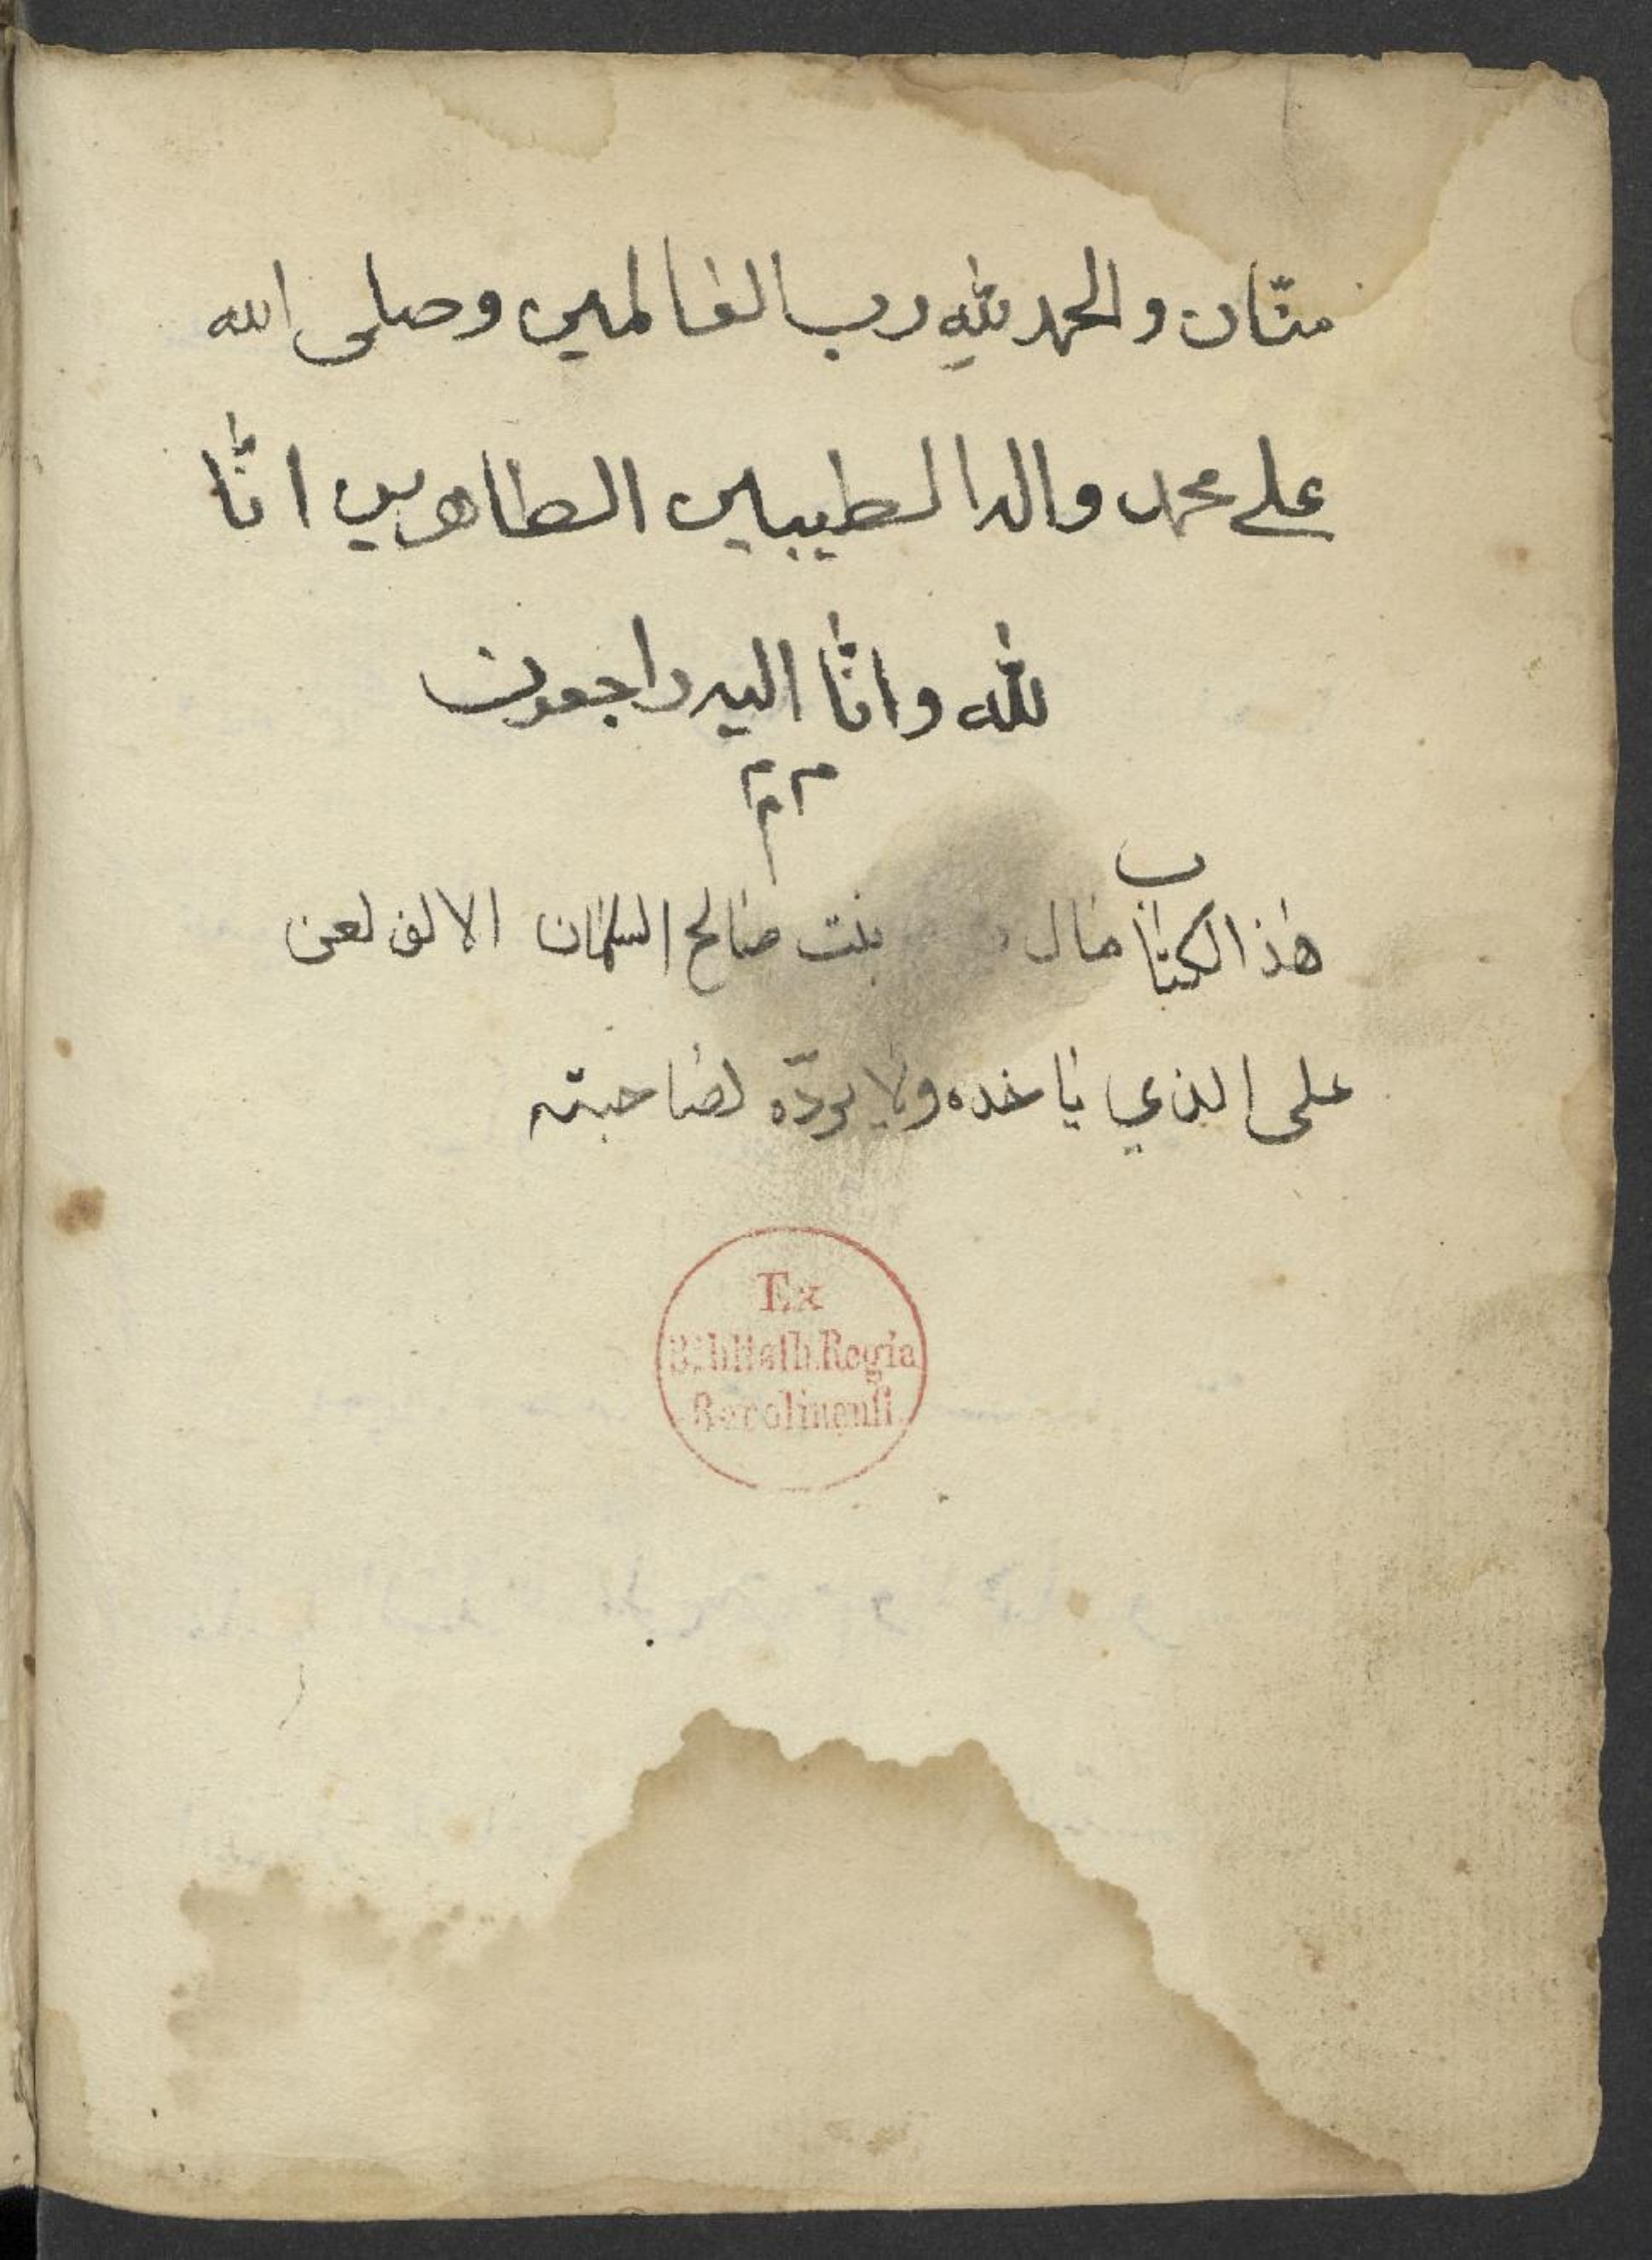 منّان والحمد لله رب العالمين وصلى الله
على محمد واله الطيبين الطاهرين انّا
لله وانّا اليه راجعون
م م م
هذا الكتاب مال بنت صالح السلمان الالف لعن
على الذي ياخذه ولا يردّه لصاحبته
Ex
Biblioth. Regia
Berolinensi.